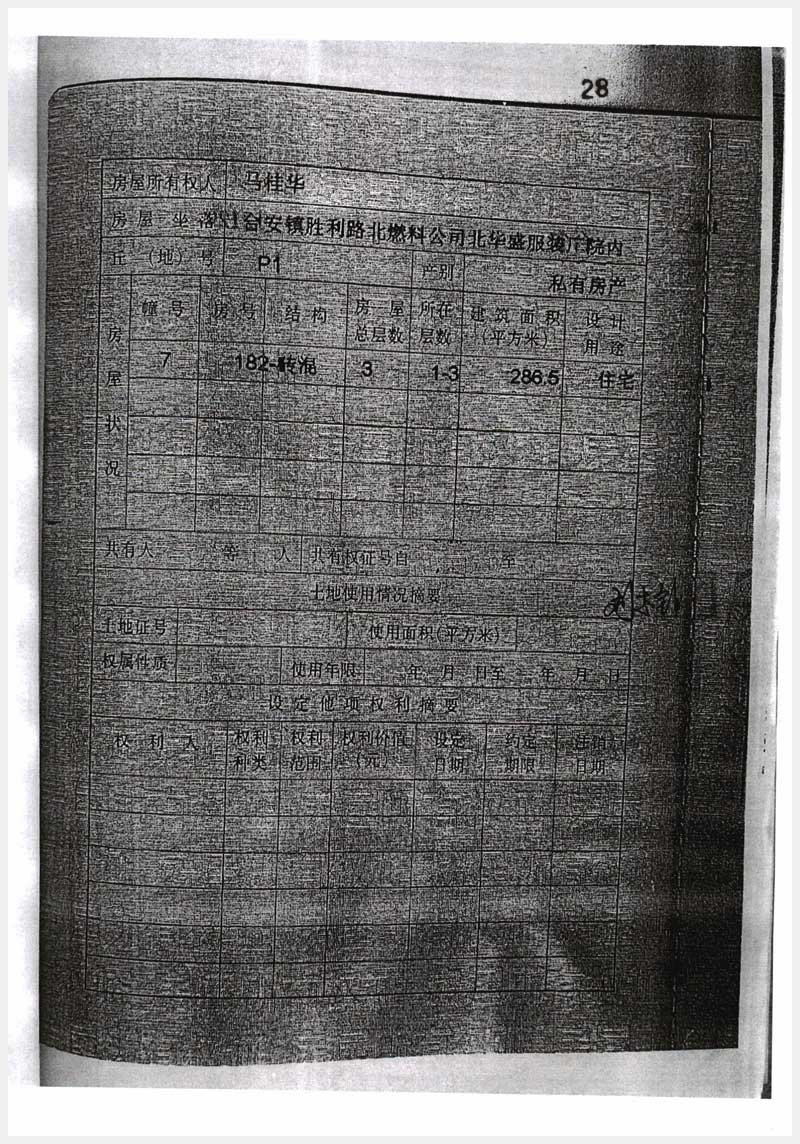 28
房屋所有权人 马桂华
房屋坐落 台安镇胜利路北燃料公司北华盛服装厂院内
丘（地）号 P1 产别 私有房产
房屋状况
幢号 房号 结构 房屋总层数 所在层数 建筑面积（平方米） 设计用途
7 182- 砖混 3 1-3 286.5 住宅
共有人 等 人 共有权证号自 至
土地使用情况摘要
土地证号 使用面积（平方米）
权属性质 使用年限 年 月 日至 年 月 日
设定他项权利摘要
权利人 权利种类 权利范围 权利价值（元） 设定日期 约定期限 注销日期